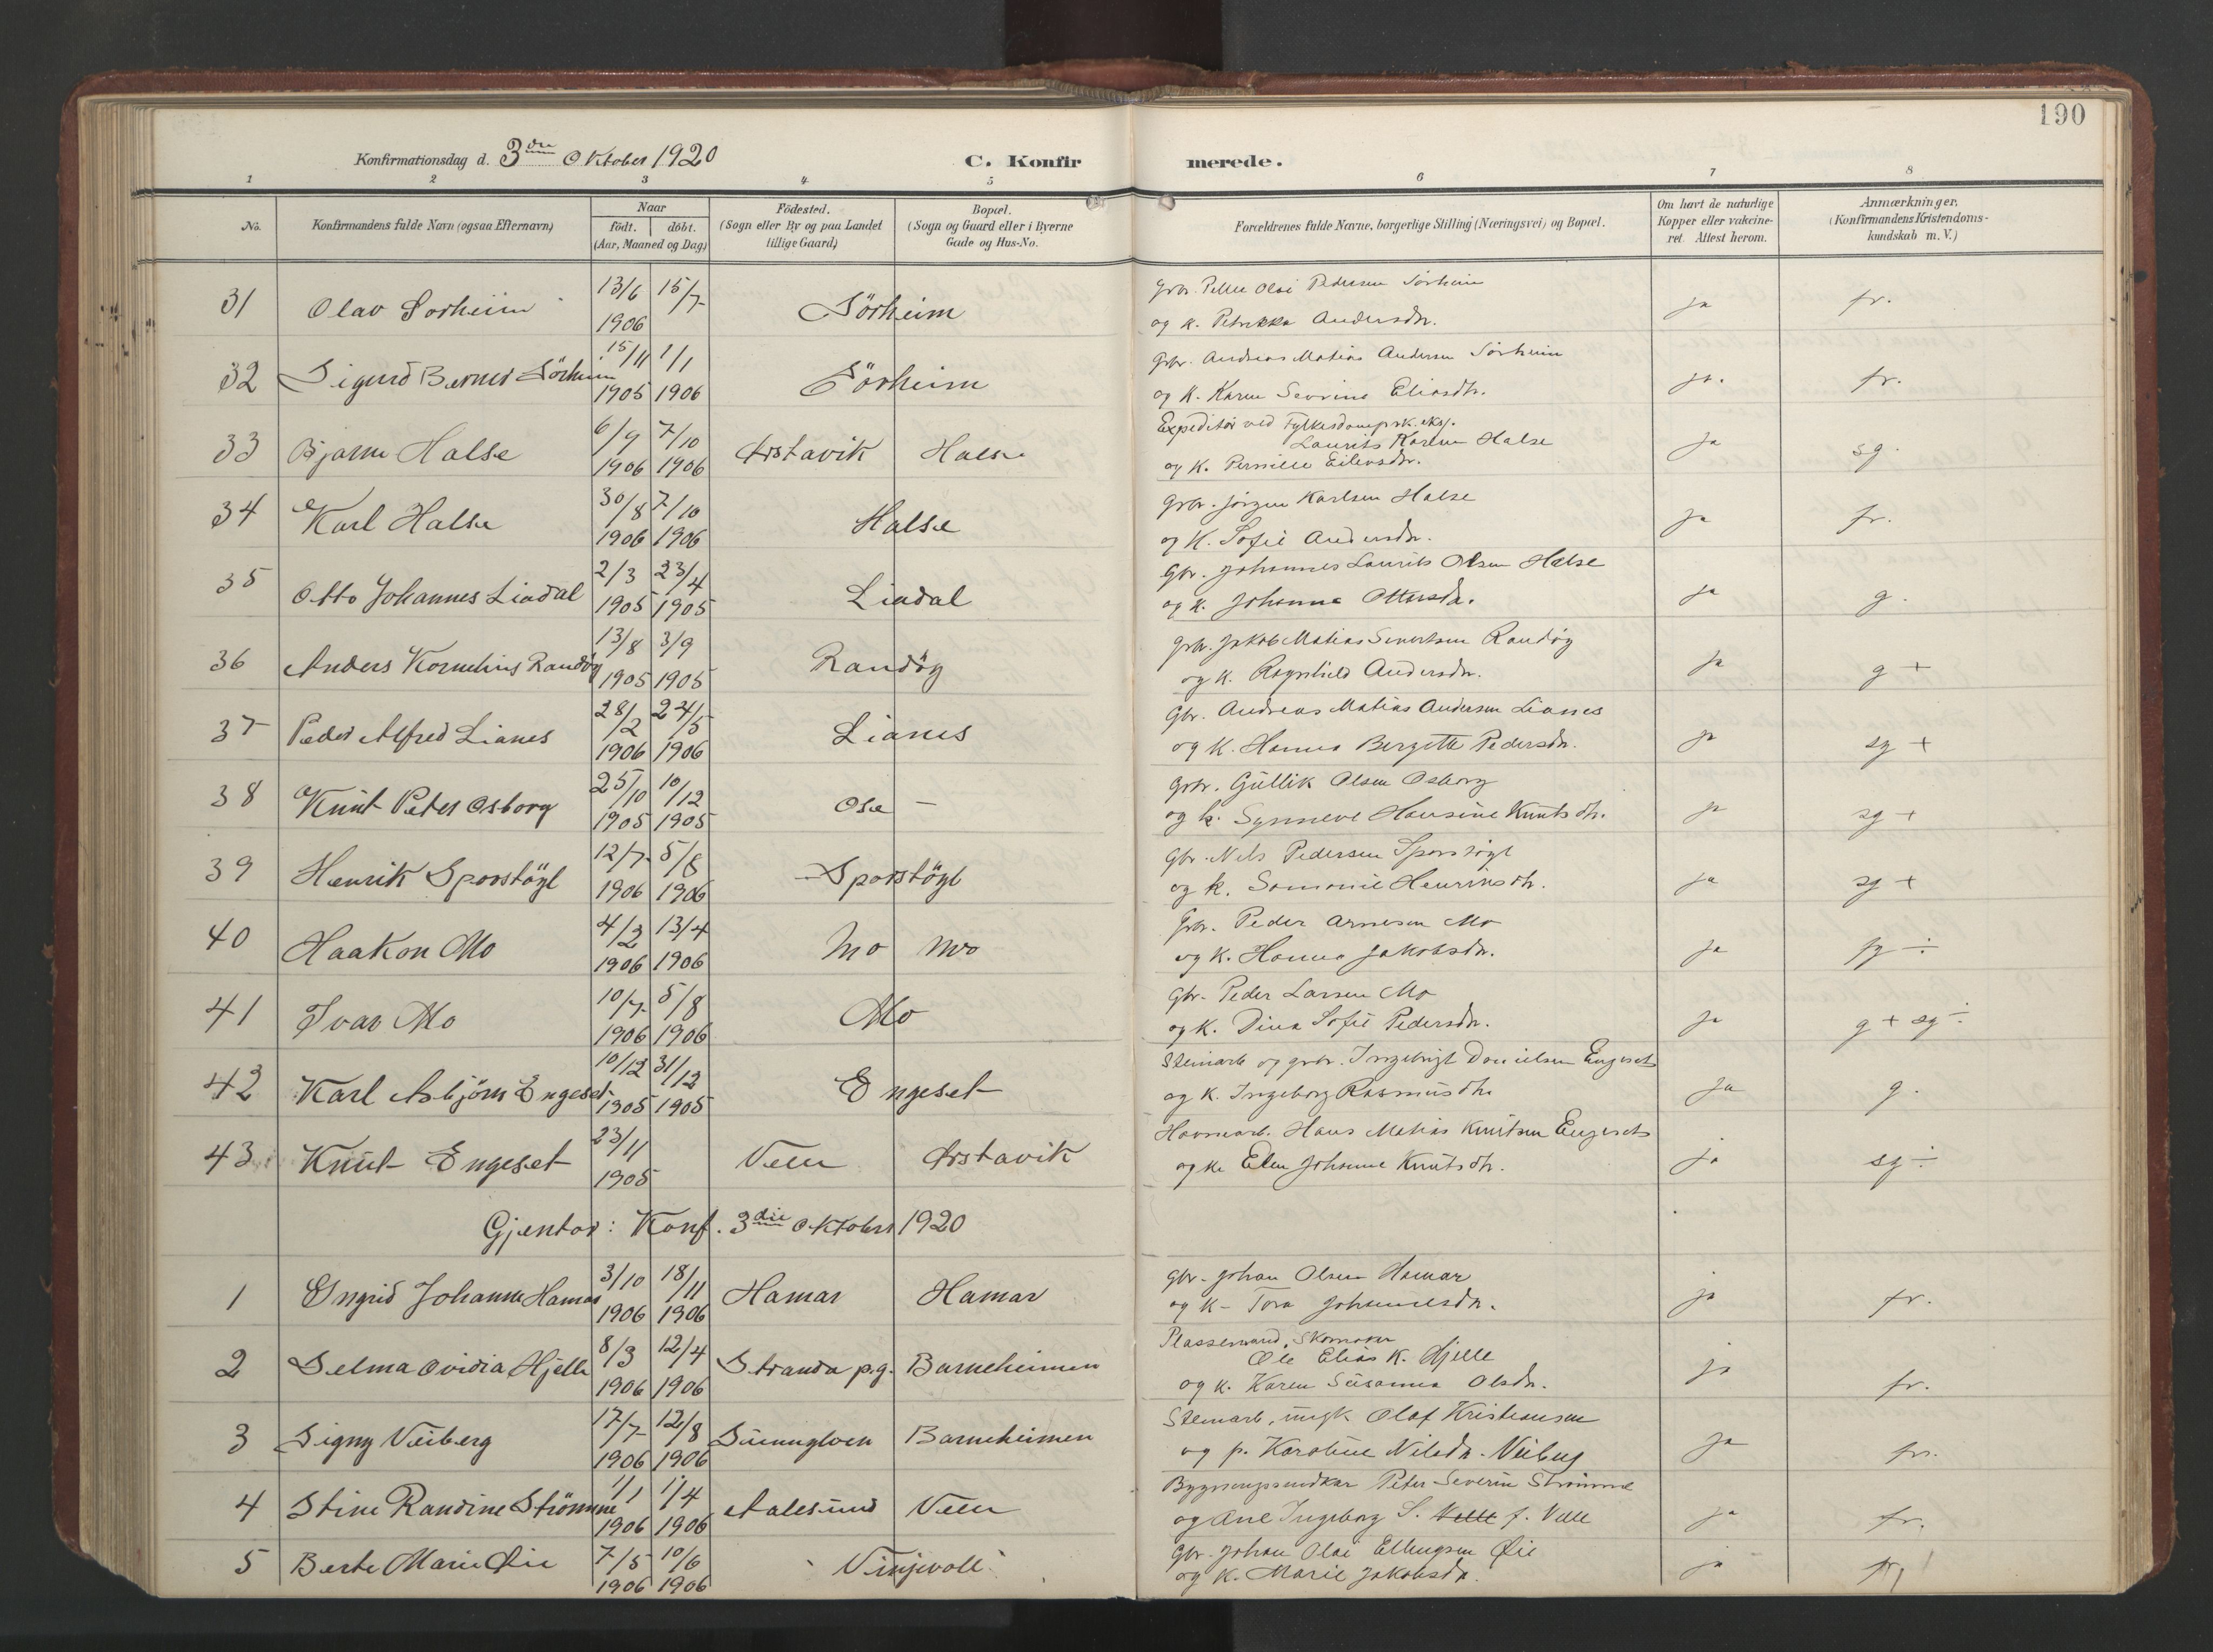 190
Konfirmationsdag d. 3die Oktober 1920
C. Konfirmerede.
1 2 3 4 5 6 7 8
No.
Konfirmandens fulde Navn (ogsaa Efternavn)
Naar
födt. döbt.
(Aar, Maaned og Dag)
Födested.
(Sogn eller By og paa Landet
tillige Gaard)
Bopæl.
(Sogn og Gaard eller i Byerne
Gade og Hus-No.
Forældrenes fulde Navne, borgerlige Stilling (Næringsvei) og Bopæl.
Om havt de naturlige
Kopper eller vakcine-
ret. Attest herom.
Anmærkninger.
(Konfirmandens Kristendoms-
kundskab m. V.)
31 Olav Sørheim 13/6 1906 15/7 Sörheim
Gbr. Peder Olai Pedersen Sörheim
og k. Petrikka Andersdtr. ja fr.
32 Sigurd Berner Sörheim 15/11 1905 1/1 1906 Sörheim
Gbr. Andreas Matias Andersen Sörheim
og K. Karen Severine Eliasdtr. ja. fr.
33 Bjarne Halse 6/9 1906 7/10 1906 Årstavik Halse
Expeditör ved Fylkesdampsk.eksp.
Laurits Halse
og K. Pernille Eilertsdtr. ja sg.
34 Karl Halse 30/8 1906 7/10 1906 Halse
Gbr. Jörgen Karlsen Halse
og K. Sofie Andersdtr. ja fr.
35 Otto Johannes Liadal 2/3 1905 23/4 1905 Liadal
Gbr. Johannes Laurits Olsen Halse
og K. Johanna Ottarsdtr. ja g.
36 Anders Kornelius Randöy 13/8 1905 3/9 1905 Randöy
Gbr. Jakob Matias Sivertsen Randöy
og K. Ragnhild Andersdtr. ja g +
37 Peder Alfred Lianes 28/2 1906 24/5 1906 Lianes
Gbr. Andreas Matias Andersen Lianes
og K. Hanna Bergitte Pedersdtr. ja sg +
38 Knut Peter Osborg 25/10 1905 10/12 1905 Ose –
Gbr. Gullik Olsen Osborg
og k. Synneve Hansine Knutsdtr. ja sg +
39 Henrik Sporstöyl 12/7 1906 5/8 1906 Sporstöyl
Gbr. Nils Pedersen Sporstöyl
og k. Samonie Henriksdtr. ja sg +
40 Haakon Mo 4/2 1906 13/4 1906 Mo Mo
Gbr. Peder Arnesen Mo
og K. Hanna Jakobsdtr. ja sg ÷
41 Ivar Mo 10/7 1906 5/8 1906 Mo
Gbr. Peder Larsen Mo
og K. Dina Sofie Pedersdtr. ja g + sg ÷
42 Karl Asbjörn Engeset 10/12 1905 31/12 1905 Engeset
Steinarb. og gbr. Ingebrigt Danielsen Engeset
og K. Ingeborg Rasmusdtr. ja g.
43 Knut Engeset 23/11 1905 Velle Årstavik
Havnearb. Hans Matias Knutsen Engeset
og K. Elen Johanne Knutsdtr. ja sg ÷
Gjentor: Konf. 3die Oktober 1920
1 Ingrid Johanne Hamar 3/10 1906 18/11 1906 Hamar Hamar
Gbr. Johan Olsen Hamar
og K– Tora Johannesdtr. ja fr.
2 Selma Ovidia Hjelle 8/3 1906 12/4 1906 Stranda p.g. Barneheimen
Plassemand, Skomaker
Ole Elias K. Hjelle
og K. Karen Susanna Olsdtr. ja fr.
3 Signy Veiberg 17/7 1906 12/8 1906 Sunnylven Barneheimen
Steinarb, ungk Olaf Kristiansen
og p. Karoline Nilsdtr. Veiberg ja fr.
4 Stine Randine Strömme 1/1 1906 1/4 1906 Aalesund Velle
Bygningssnedkar Peter Severin Strömme
og Ane Ingeborg S. Velle f. Velle ja fr.
5 Berte Marie Øie 7/5 1906 10/6 1906 Vinjevoll
Gbr. Johan Olai Ellingsen Øie
og K. Marie Jakobsdtr. ja fr